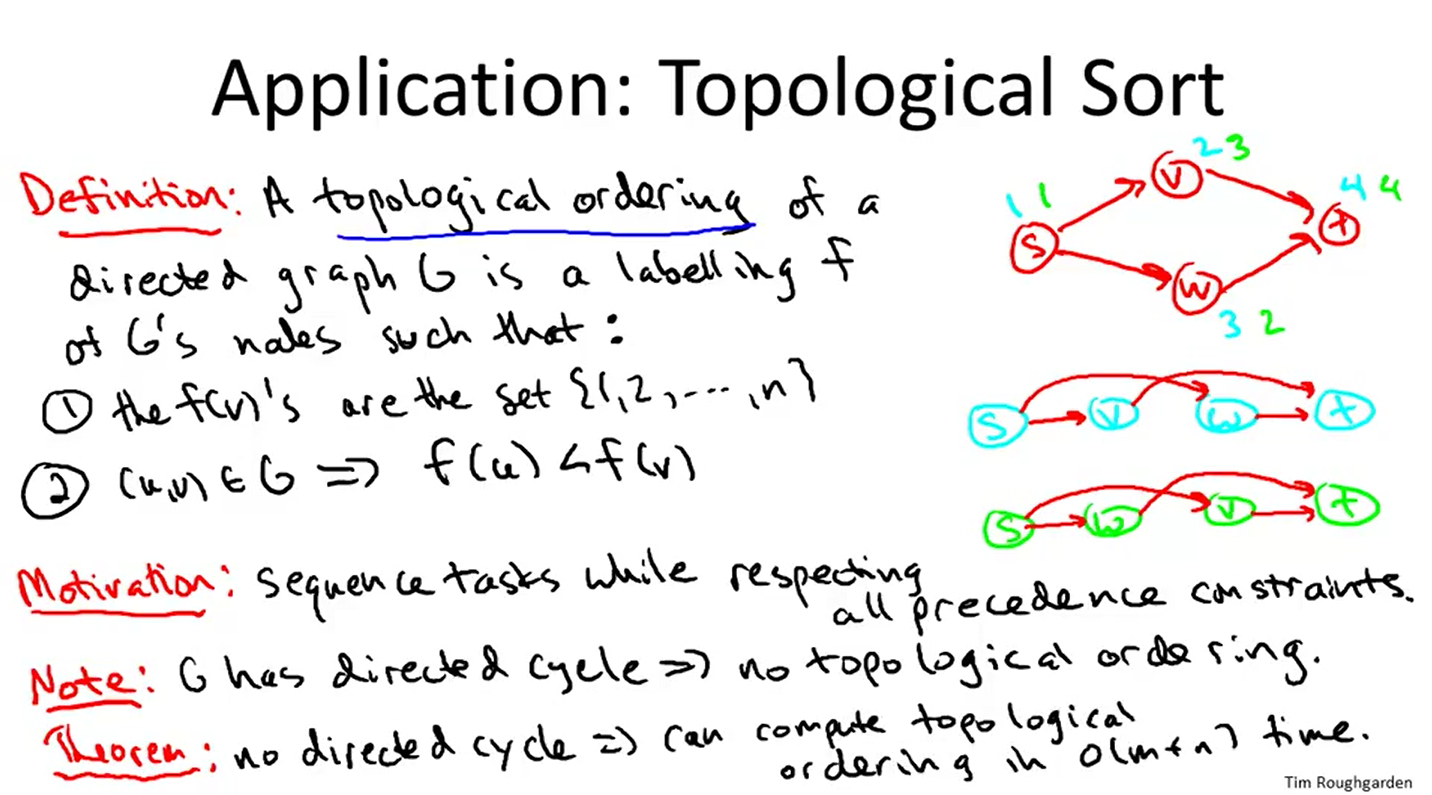 Application: Topological Sort
Definition: A topological ordering of a
directed graph G is a labelling f
of G's nodes such that:
① the f(v)'s are the set {1,2,...,n}
② (u,v) ∈ G => f(u) < f(v)
2 3
v
1 1
4 4
s
t
w
3 2
s v w t
s w v t
Motivation: sequence tasks while respecting
all precedence constraints.
Note: G has directed cycle => no topological ordering.
Theorem: no directed cycle => can compute topological
ordering in O(m+n) time.
Tim Roughgarden